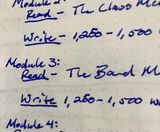 Module 2:
Read - The Class Me
Write - 1,250 - 1,500
Module 3:
Read - The Band M
Write 1,250 - 1,500 w
Module 4: